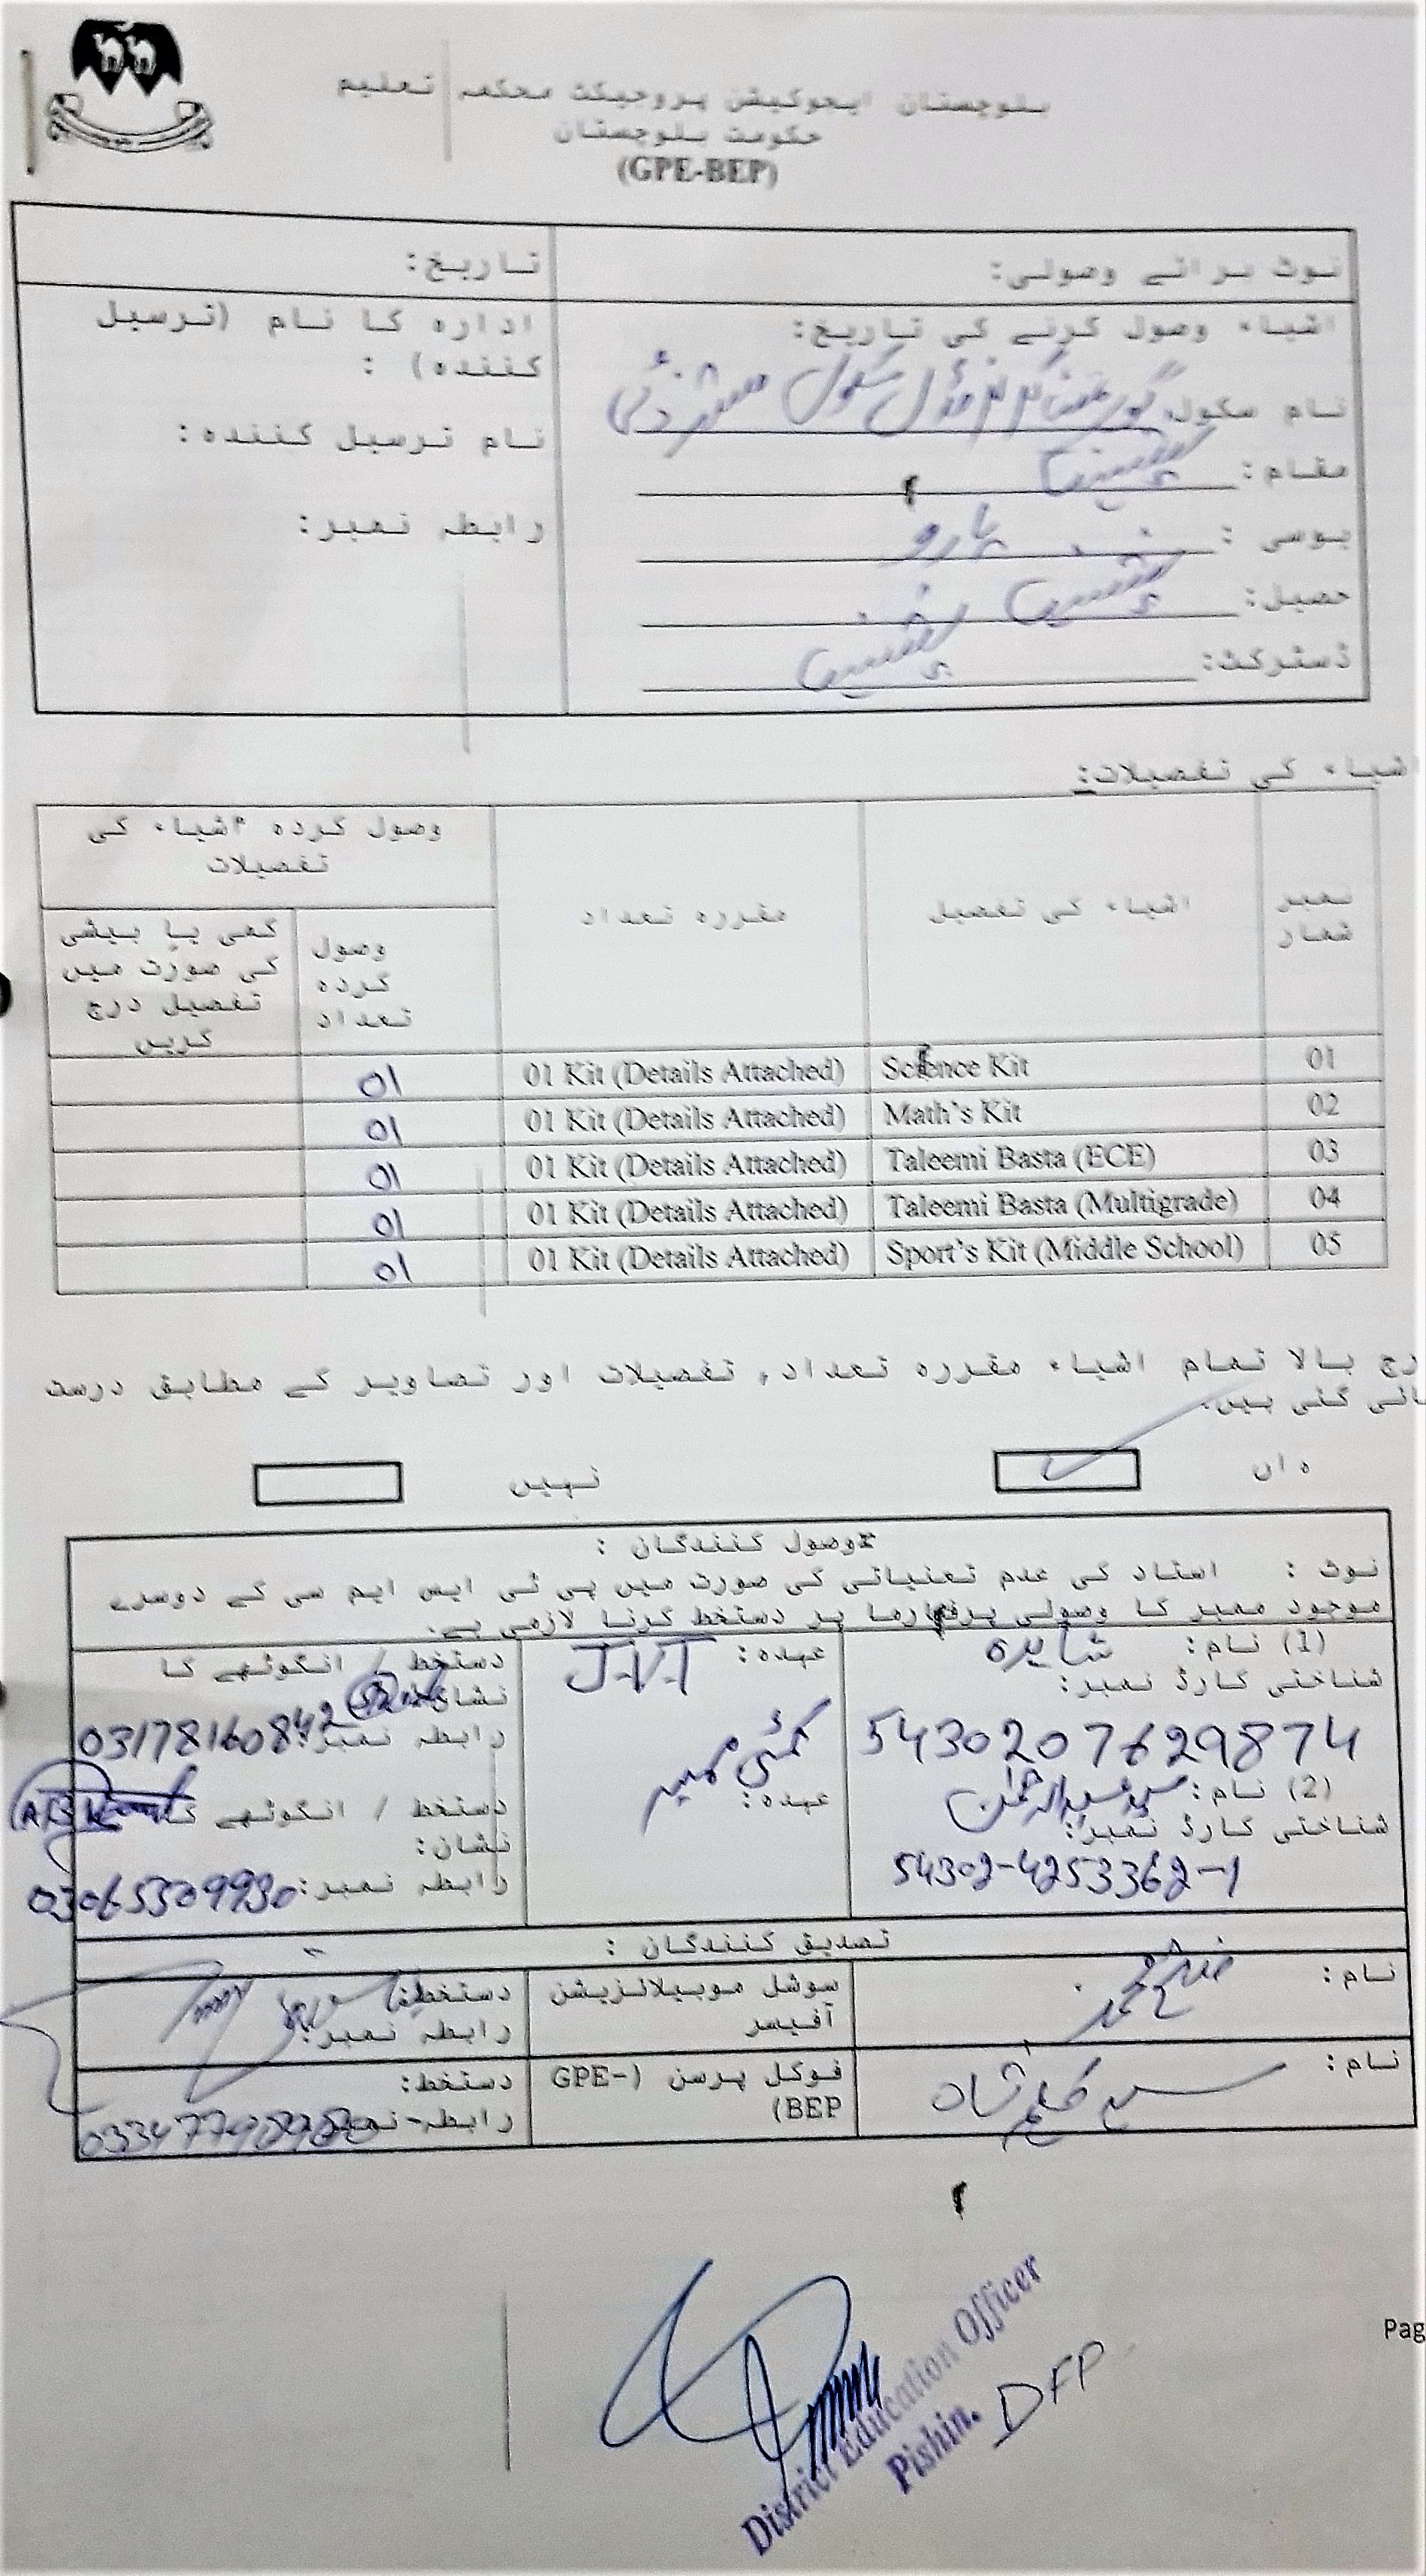 بلوچستان ایجوکیشن پروجیکٹ محکمہ تعلیم
حکومت بلوچستان
(GPE-BEP)
نوٹ برائے وصولی:
تاریخ:
اشیاء وصول کرنے کی تاریخ:
نام سکول گورنمنٹ گرلز مڈل سکول
مقام: پشین
یوسی :
حصیل: پشین
ڈسٹرکٹ: پشین
ادارہ کا نام (ترسیل
کنندہ) :
نام ترسیل کنندہ:
رابطہ نمبر:
اشیاء کی تفصیلات:
نمبر شمار
اشیاء کی تفصیل
مقررہ تعداد
وصول کردہ اشیاء کی تفصیلات
وصول کردہ تعداد
کمی یا بیشی کی صورت میں تفصیل درج کریں
01 Science Kit 01 Kit (Details Attached) 01
02 Math's Kit 01 Kit (Details Attached) 01
03 Taleemi Basta (ECE) 01 Kit (Details Attached) 01
04 Taleemi Basta (Multigrade) 01 Kit (Details Attached) 01
05 Sport's Kit (Middle School) 01 Kit (Details Attached) 01
رج بالا تمام اشیاء مقررہ تعداد, تفصیلات اور تصاویر کے مطابق درست
ائی گئی ہیں.
ہاں
نہیں
وصول کنندگان :
نوٹ : استاد کی عدم تعنیاتی کی صورت میں پی ٹی ایس ایم سی کے دوسرے
موجود ممبر کا وصولی پرفارما پر دستخط کرنا لازمی ہے.
(1) نام:
عہدہ: J.V.T
دستخط / انگوٹھے کا
نشان
شناختی کارڈ نمبر:
5430207629874
رابطہ نمبر: 03178160842
(2) نام:
عہدہ:
دستخط / انگوٹھے کا
نشان:
شناختی کارڈ نمبر:
54302-4253362-1
رابطہ نمبر: 03065309930
تصدیق کنندگان :
نام:
سوشل موبیلائزیشن
آفیسر
دستخط:
رابطہ نمبر:
نام:
فوکل پرسن (GPE-
BEP)
دستخط:
رابطہ نمبر
District Education Officer
Pishin.
DFP
Pag